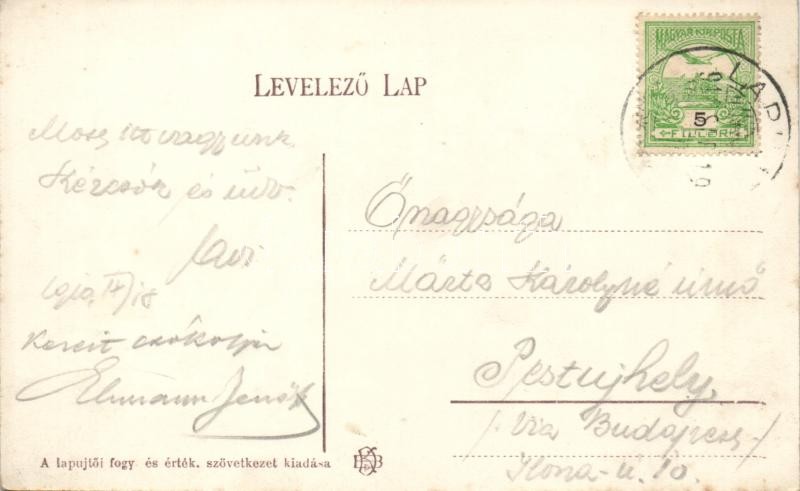 LEVELEZŐ LAP
MAGYAR KIR. POSTA
5
FILLÉR
LAPUJ
Most itt vagyunk
Kézcsók és üdv.
1910 IV/18
Kezeit csókolja
Ehmann Jenő
Őnagysága
Márta Károlyné úrnő
Pestujhely,
/Via Budapest/
Ilona-u. 10.
A lapujtői fogy. és érték. szövetkezet kiadása